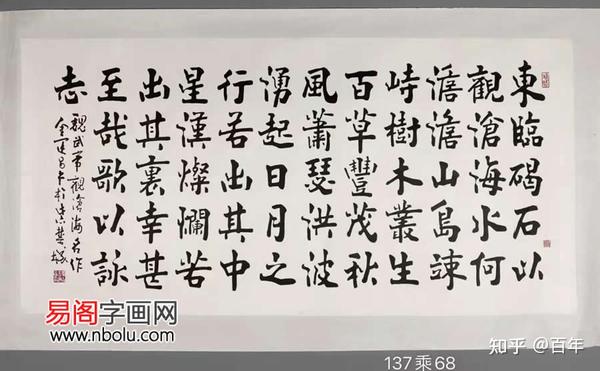 東臨碣石以
觀滄海水何
澹澹山島竦
峙樹木叢生
百草豐茂秋
風蕭瑟洪波
湧起日月之
行若出其中
星漢燦爛若
出其裏幸甚
至哉歌以詠
志
魏武帝觀滄海名作
金運昌書於紫禁城
易阁字画网
www.nbolu.com
知乎 @百年
137乘68